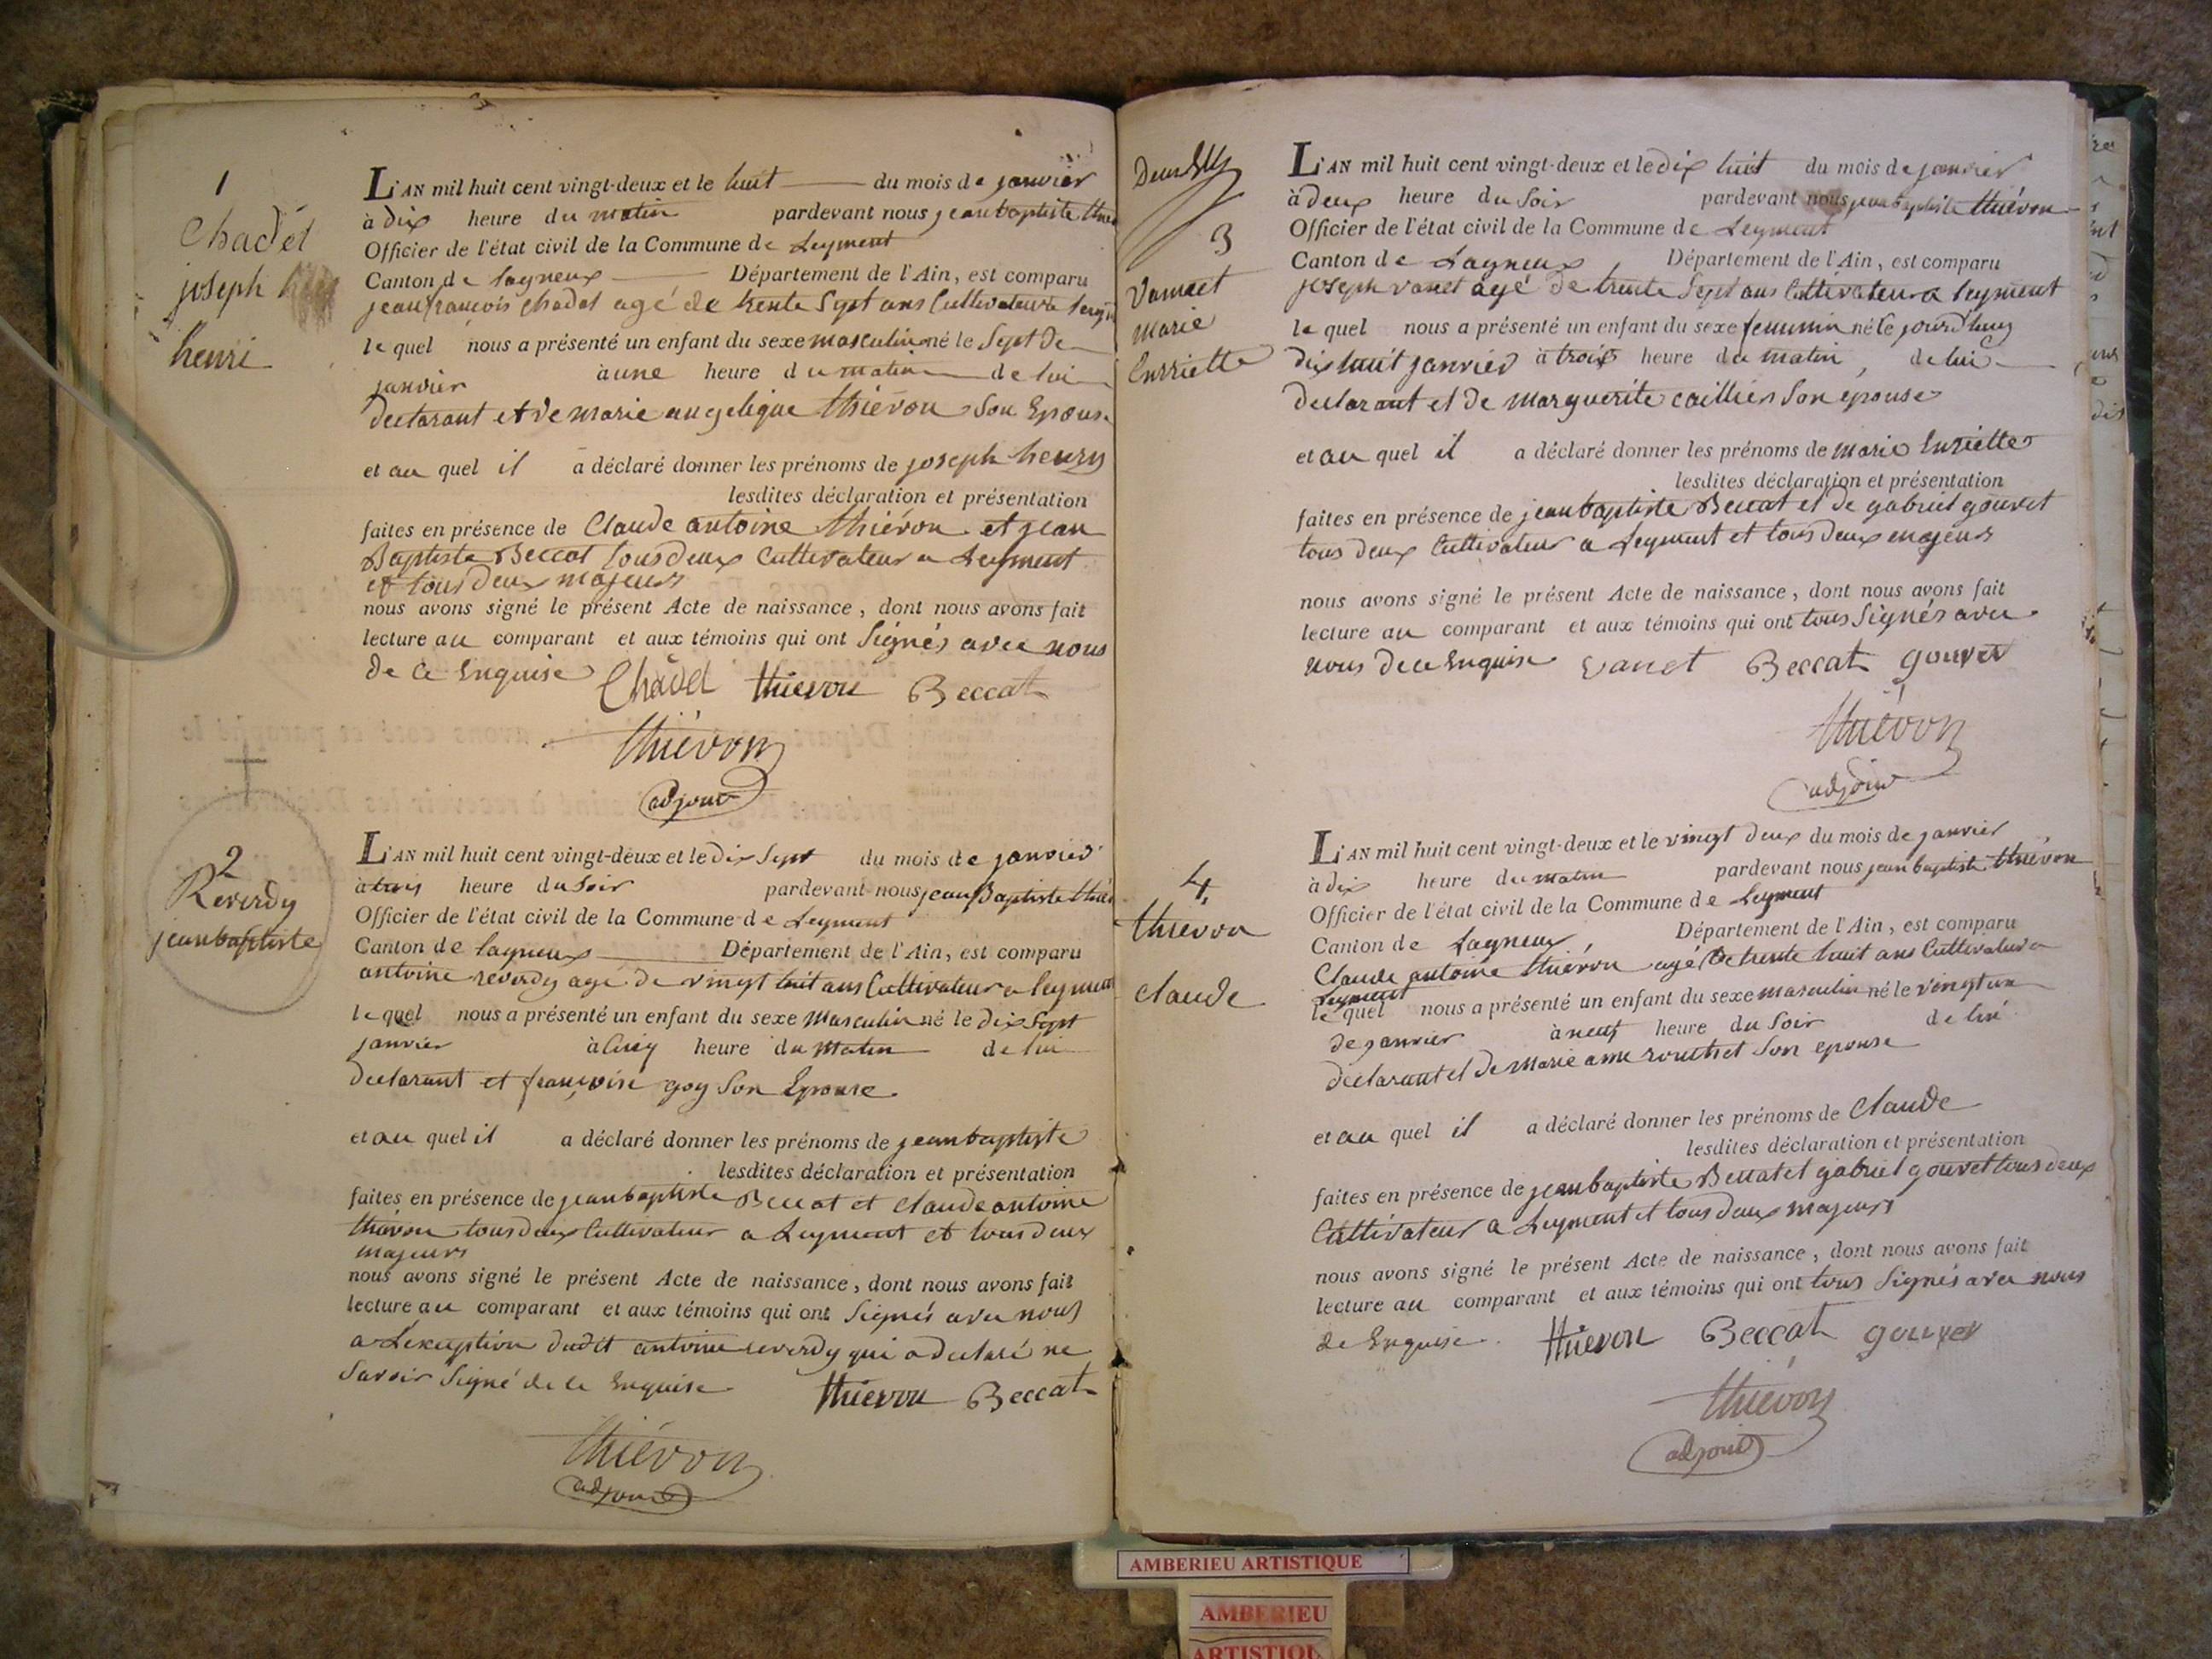 1
Chadet
joseph
henri
L'AN mil huit cent vingt-deux et le huit du mois de janvier
à dix heure du matin pardevant nous jean baptiste thie
Officier de l'état civil de la Commune de Leyment
Canton de lagneux Département de l'Ain, est comparu
jean françois Chadet agé de trente Sept ans Cultivateur a
le quel nous a présenté un enfant du sexe masculin né le Sept De
janvier à une heure du matin de lui
declarant et de marie angelique thiévon Son Epouse
et au quel il a déclaré donner les prénoms de joseph henry
lesdites déclaration et présentation
faites en présence de Claude antoine thiévon et jean
Baptiste Beccat tous deux Cultivateur a Leyment
et tous deux majeurs
nous avons signé le présent Acte de naissance, dont nous avons fait
lecture au comparant et aux témoins qui ont Signés avec nous
de ce Enquise Chadet thievon Beccat
thiévon
adjoint
2
Reverdy
jean baptiste
L'AN mil huit cent vingt-deux et le dix Sept du mois de janvier
à trois heure du Soir pardevant nous jean Baptiste thié
Officier de l'état civil de la Commune de Leyment
Canton de lagneux Département de l'Ain, est comparu
antoine reverdy agé de vingt huit ans Cultivateur a leyment
le quel nous a présenté un enfant du sexe Masculin né le dix Sept
janvier à Cinq heure du Matin de lui
declarant et françoise goy Son Epouse
et au quel il a déclaré donner les prénoms de jean baptiste
lesdites déclaration et présentation
faites en présence de jean baptiste Beccat et Claude antoine
thiévon tous deux Cultivateur a Leyment et tous deux
majeurs
nous avons signé le présent Acte de naissance, dont nous avons fait
lecture au comparant et aux témoins qui ont Signés avec nous
a L'exception dudit antoine reverdy qui a declaré ne
Savoir Signé de ce Enquise thievon Beccat
thiévon
adjoint
3
Vannet
Marie
Enriette
L'AN mil huit cent vingt-deux et le dix huit du mois de janvier
à deux heure du Soir pardevant nous jean baptiste thiévon
Officier de l'état civil de la Commune de Leyment
Canton de Lagneux Département de l'Ain, est comparu
joseph vanet agé de trente Sept ans Cultivateur a leyment
le quel nous a présenté un enfant du sexe feminin né le jourd'huy
dix huit janvier à trois heure du matin de lui
declarant et de marguerite caillier Son epouse
et au quel il a déclaré donner les prénoms de marie Enriette
lesdites déclaration et présentation
faites en présence de jean baptiste Beccat et de gabriel gouvet
tous deux Cultivateur a Leyment et tous deux majeurs
nous avons signé le présent Acte de naissance, dont nous avons fait
lecture au comparant et aux témoins qui ont tous Signés avec
nous de ce Enquise vanet Beccat gouvet
thiévon
adjoint
4
thievon
claude
L'AN mil huit cent vingt-deux et le vingt deux du mois de janvier
à dix heure du matin pardevant nous jean baptiste thiévon
Officier de l'état civil de la Commune de Leyment
Canton de Lagneux Département de l'Ain, est comparu
Claude antoine thiévon agé de trente huit ans Cultivateur a
Leyment
le quel nous a présenté un enfant du sexe masculin né le vingt un
de janvier à neuf heure du Soir de lui
declarant et de Marie anne Son epouse
et au quel il a déclaré donner les prénoms de Claude
lesdites déclaration et présentation
faites en présence de jean baptiste Beccat et gabriel gouvet tous deux
Cultivateur a Leyment et tous deux majeurs
nous avons signé le présent Acte de naissance, dont nous avons fait
lecture au comparant et aux témoins qui ont tous Signés avec nous
de Enquise. thievon Beccat gouvet
thiévon
adjoint
AMBERIEU ARTISTIQUE
AMBERIEU
ARTISTIQU